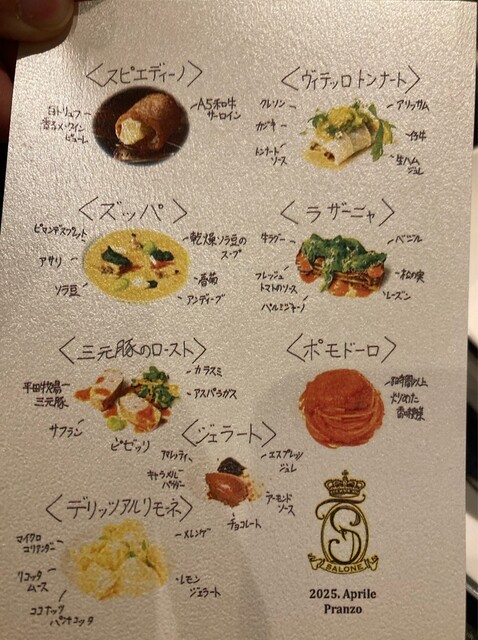 〈スピエディーノ〉
白トリュフ
香るメークイン
ピューレ
A5和牛
サーロイン
〈ヴィテッロトンナート〉
クレソン
カジキ
トンナート
ソース
アリッサム
仔牛
生ハム
ジュレ
〈ズッパ〉
ピマンデスプレット
アサリ
ソラ豆
乾燥ソラ豆の
スープ
春菊
アンディーブ
〈ラザーニャ〉
牛ラグー
フレッシュ
トマトのソース
パルミジャーノ
バジル
松の実
レーズン
〈三元豚のロースト〉
平田牧場
三元豚
サフラン
ピゼッリ
カラスミ
アスパラガス
〈ポモドーロ〉
時間以上
炒めた
香味野菜
〈ジェラート〉
アマレッティ
キャラメル
パウダー
チョコレート
エスプレッソ
ジュレ
アーモンド
ソース
〈デリッツァアルリモーネ〉
マイクロ
コリアンダー
リコッタ
ムース
ココナッツ
パンナコッタ
メレンゲ
レモン
ジェラート
SALONE
2025. Aprile
Pranzo